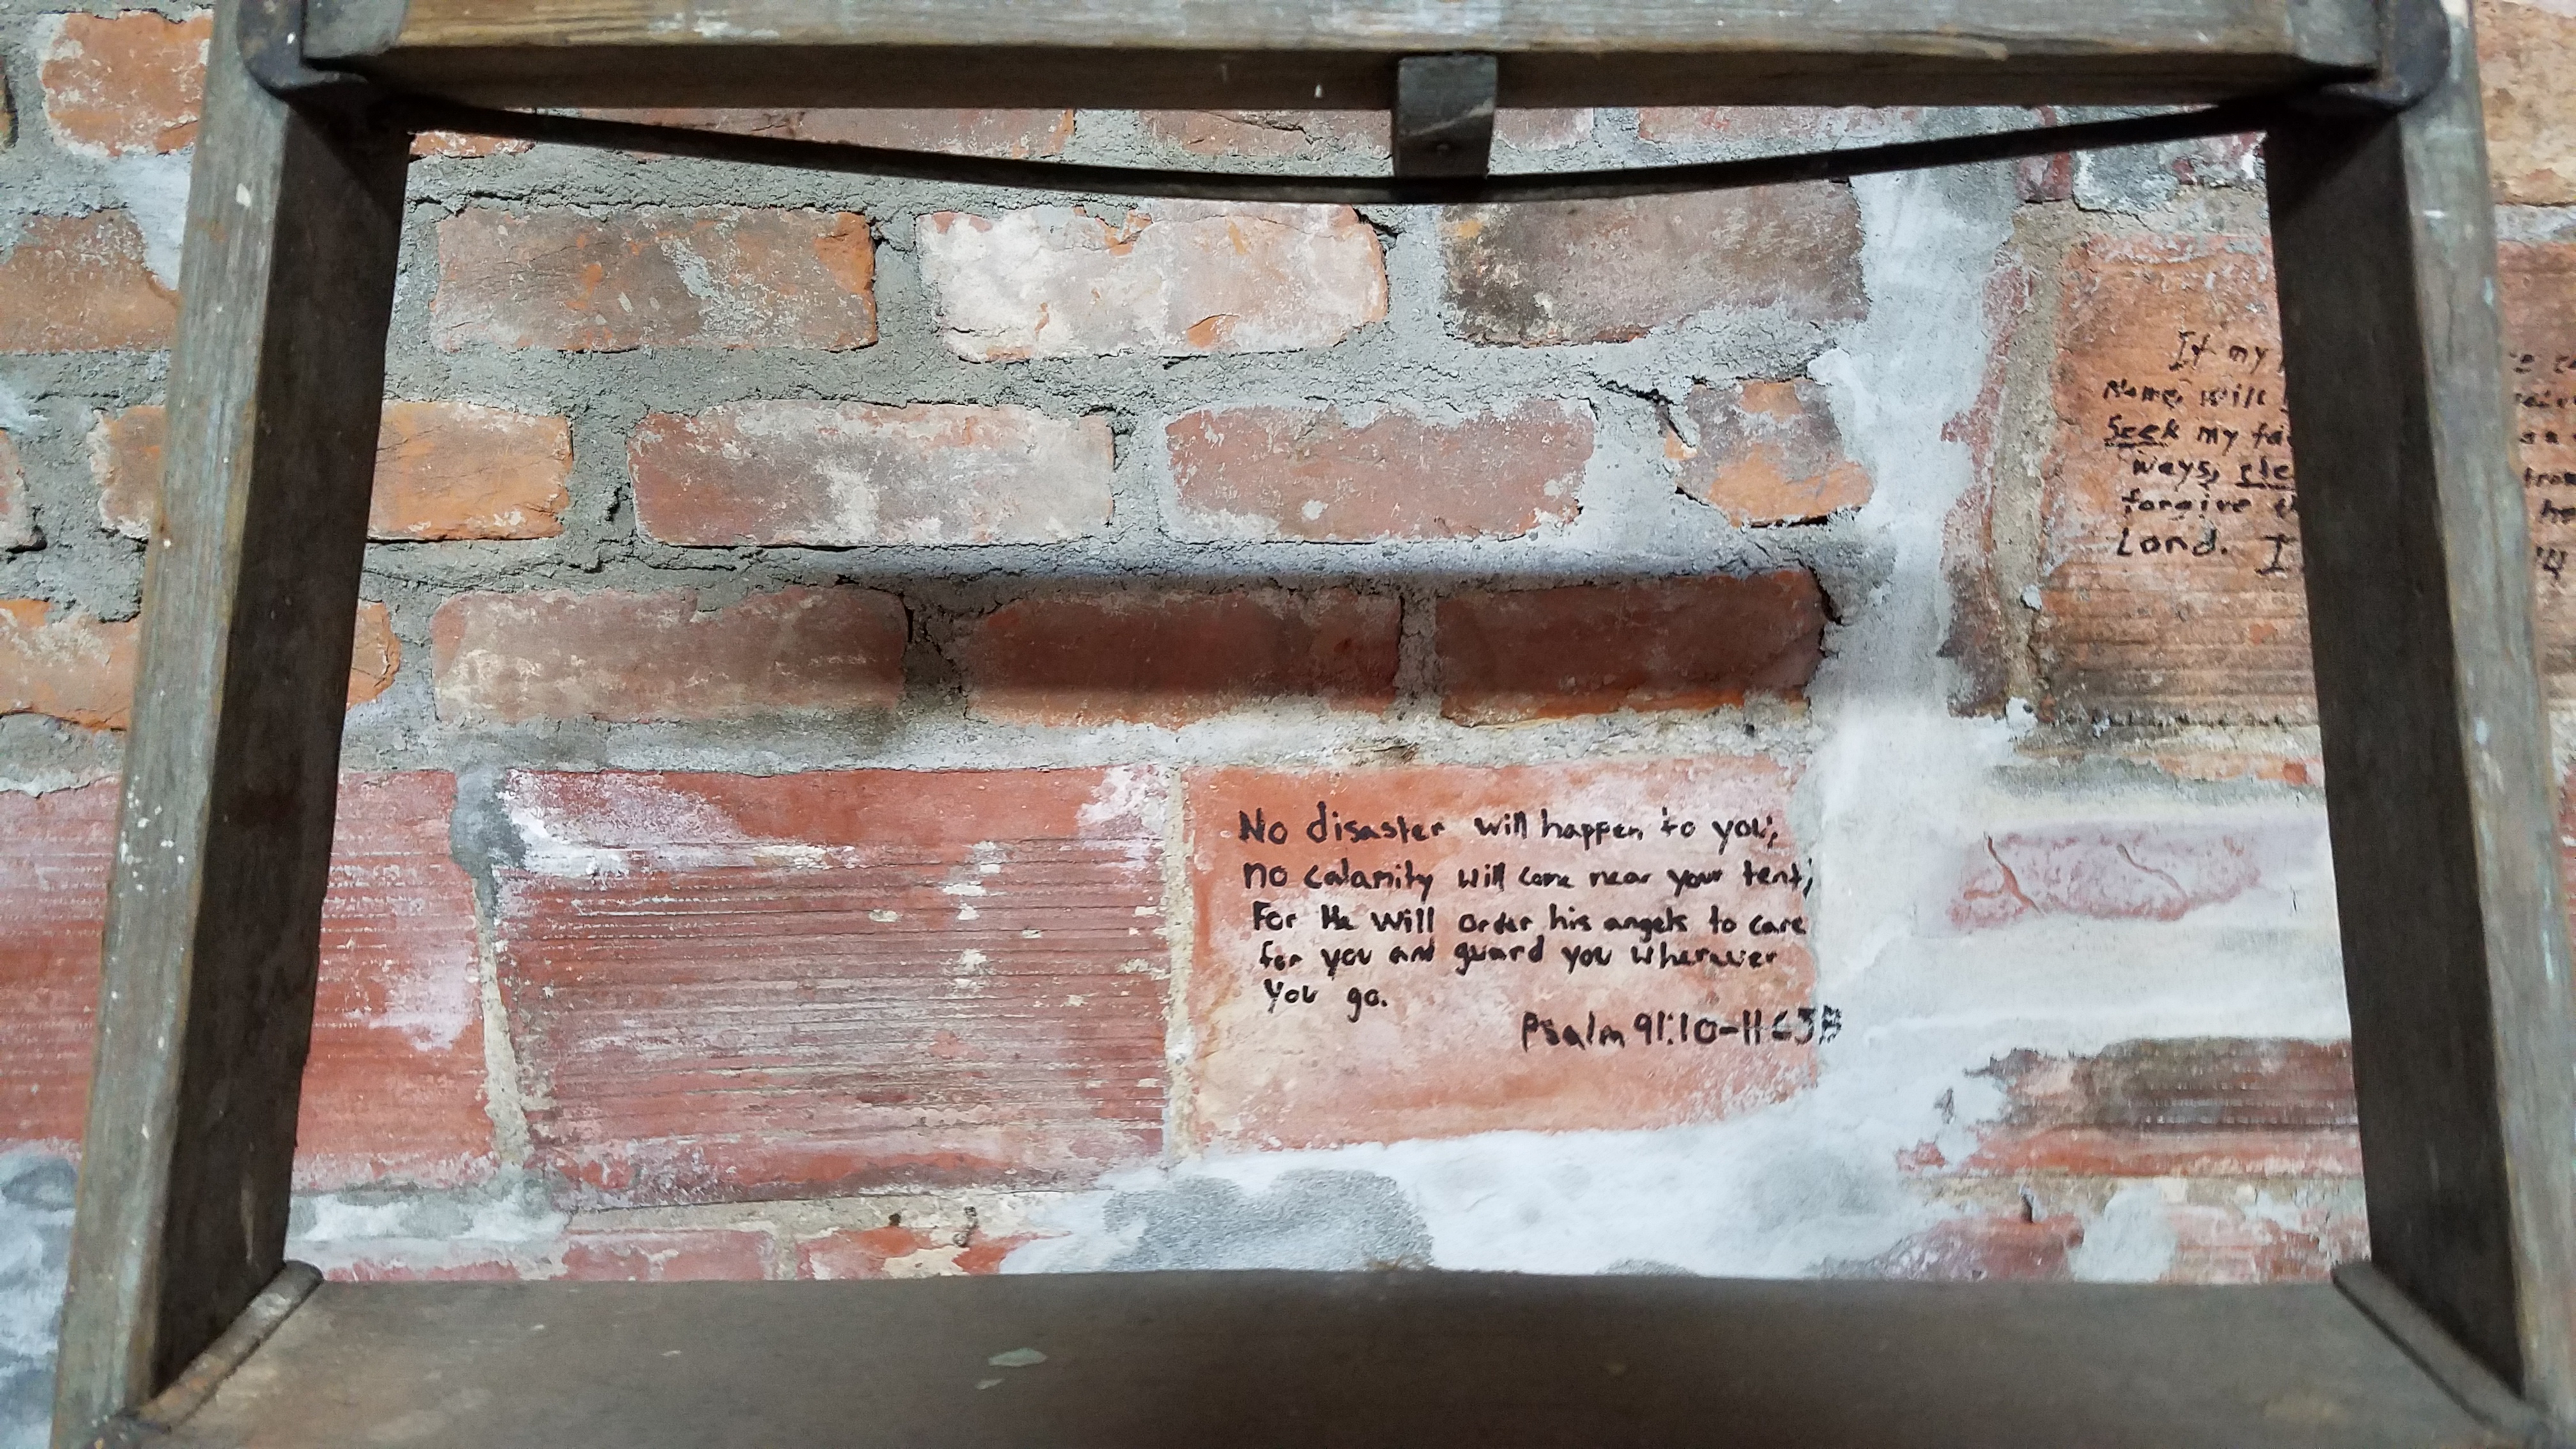 No disaster will happen to you;
no calamity will come near your tent;
For He will order his angels to care
for you and guard you wherever
you go.
Psalm 91:10-11 CJB
If my
Name, will
Seek my
ways,
forgive
Land. I